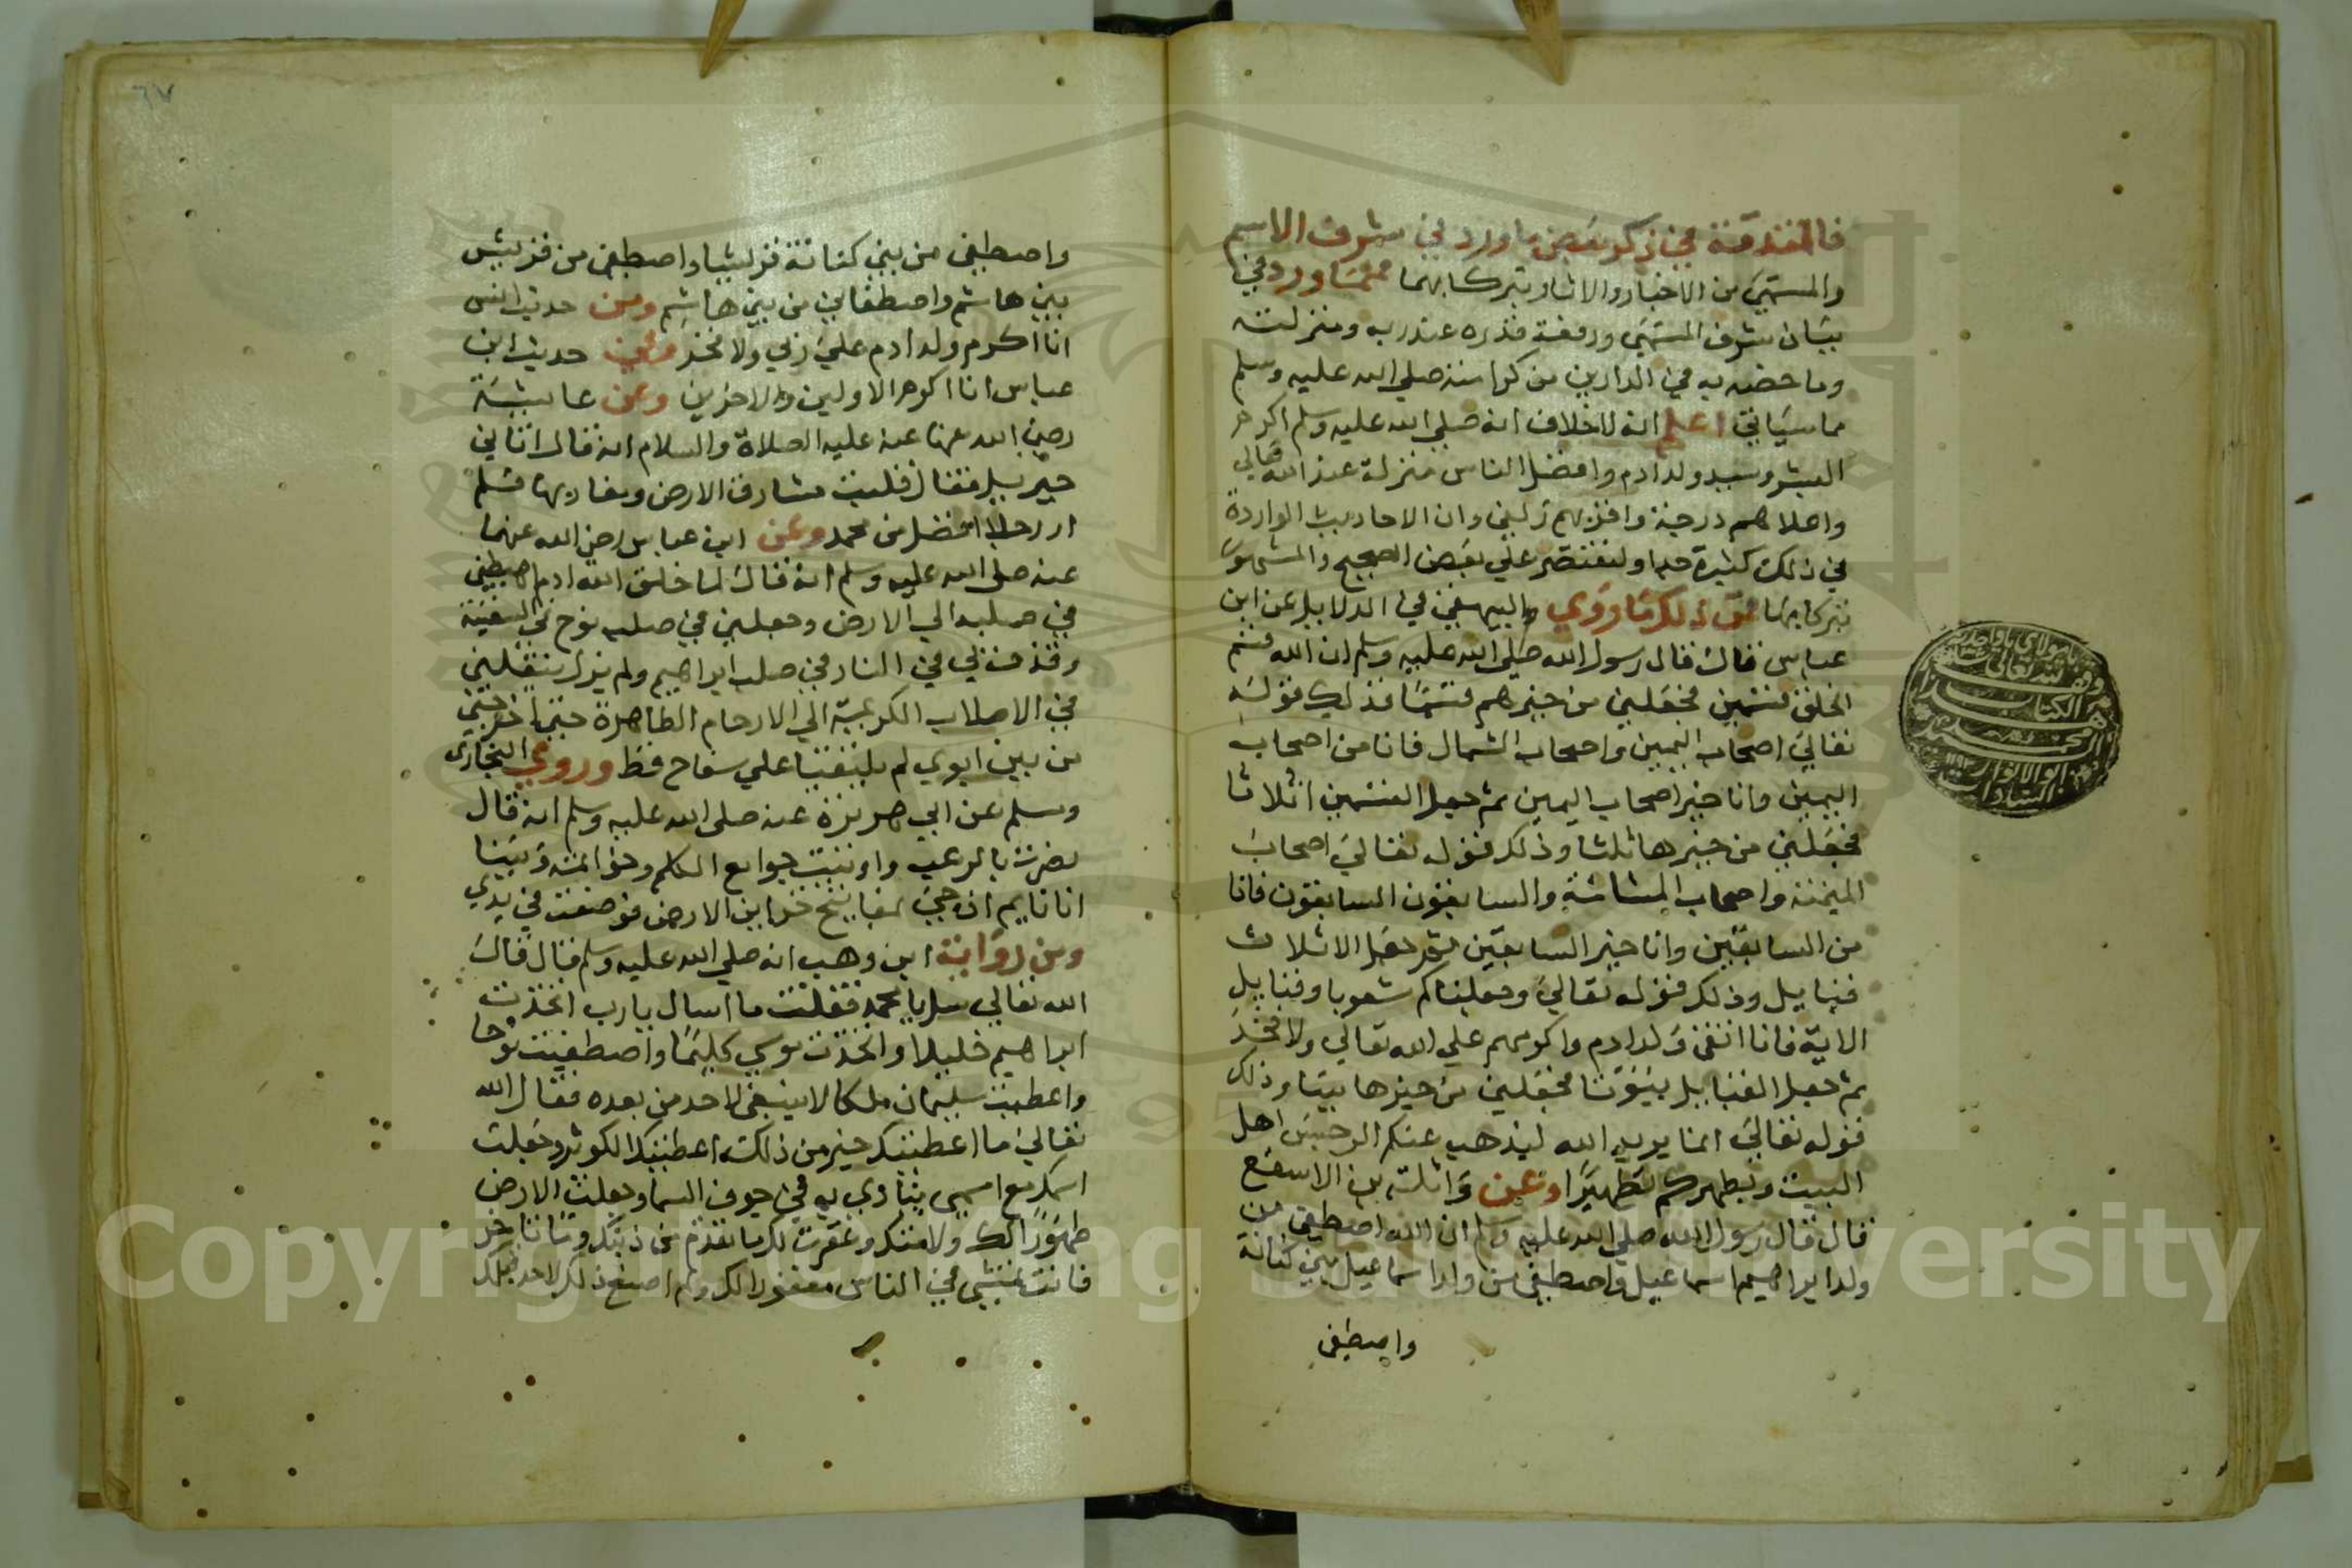 فالمقدمة في ذكر بعض ما ورد في شرف الاسم
والمسمي من الاخبار والاثار وتبركا بهما فمما ورد في
بيان شرف المسمي ورفعة قدره عند ربه ومنزلته
وما خصه به في الدارين من كرامته صلي الله عليه وسلم
مما سياتي اعلم انه لا خلاف انه صلي الله عليه وسلم اكرم
البشر وسيد ولد ادم وافضل الناس منزلة عند الله تعالي
واعلاهم درجة واقربهم زلفي وان الاحاديث الواردة
في ذلك كثيرة جدا ولنقتصر علي بعض الصحيح والمشهور
تبركا بها فمن ذلك ما روي البيهقي في الدلايل عن ابن
عباس قال قال رسول الله صلي الله عليه وسلم ان الله قسم
الخلق قسمين فجعلني من خيرهم قسما فذلك قوله
تعالي اصحاب اليمين واصحاب الشمال فانا من اصحاب
اليمين وانا خير اصحاب اليمين ثم جعل القسمين اثلاثا
فجعلني من خيرها ثلثا وذلك قوله تعالي اصحاب
الميمنة واصحاب المشامة والسابقون السابقون فانا
من السابقين وانا خير السابقين ثم جعل الاثلاث
قبايل وذلك قوله تعالي وجعلناكم شعوبا وقبايل
الاية فانا اتقي ولد ادم واكرمهم علي الله تعالي ولا فخر
ثم جعل القبايل بيوتا فجعلني من خيرها بيتا وذلك
قوله تعالي انما يريد الله ليذهب عنكم الرجس اهل
البيت ويطهركم تطهيرا وعن واثلة بن الاسقع
قال قال رسول الله صلي الله عليه وسلم ان الله اصطفي من
ولد ابراهيم اسماعيل واصطفي من ولد اسماعيل بني كنانة
واصطفي
واصطفي من بني كنانة قريشا واصطفي من قريش
بني هاشم واصطفاني من بني هاشم ومن حديث انس
انا اكرم ولد ادم علي ربي ولا فخر وفي حديث ابن
عباس انا اكرم الاولين والاخرين وعن عايشة
رضي الله عنها عنه عليه الصلاة والسلام انه قال اتاني
جبريل فقال قلبت مشارق الارض ومغاربها فلم
ار رجلا افضل من محمد وعن ابن عباس رضي الله عنهما
عنه صلي الله عليه وسلم انه قال لما خلق الله ادم اهبطني
في صلبه الي الارض وجعلني في صلب نوح في السفينة
وقذف بي في النار في صلب ابراهيم ولم يزل ينقلني
في الاصلاب الكريمة الي الارحام الطاهرة حتي اخرجني
من بين ابوي لم يلتقيا علي سفاح قط وروي البخاري
ومسلم عن ابي هريرة عنه صلي الله عليه وسلم انه قال
نصرت بالرعب واوتيت جوامع الكلم وبينا
انا نايم اذ جي بمفاتيح خزاين الارض فوضعت في يدي
ومن رواية ابن وهب انه صلي الله عليه وسلم قال قال
الله تعالي سل يا محمد فقلت ما اسال يا رب اتخذت
ابراهيم خليلا واتخذت موسي كليما واصطفيت نوحا
واعطيت سليمان ملكا لا ينبغي لاحد من بعده فقال الله
تعالي ما اعطيتك خير من ذلك اعطيتك الكوثر وجعلت
اسمك مع اسمي ينادي به في جوف السما وجعلت الارض
طهورا لك ولامتك وغفرت لك ما تقدم من ذنبك وما تاخر
فانت تمشي في الناس مغفورا لك ولم اصنع ذلك لاحد قبلك
٦٧
Copyright © King Saud University